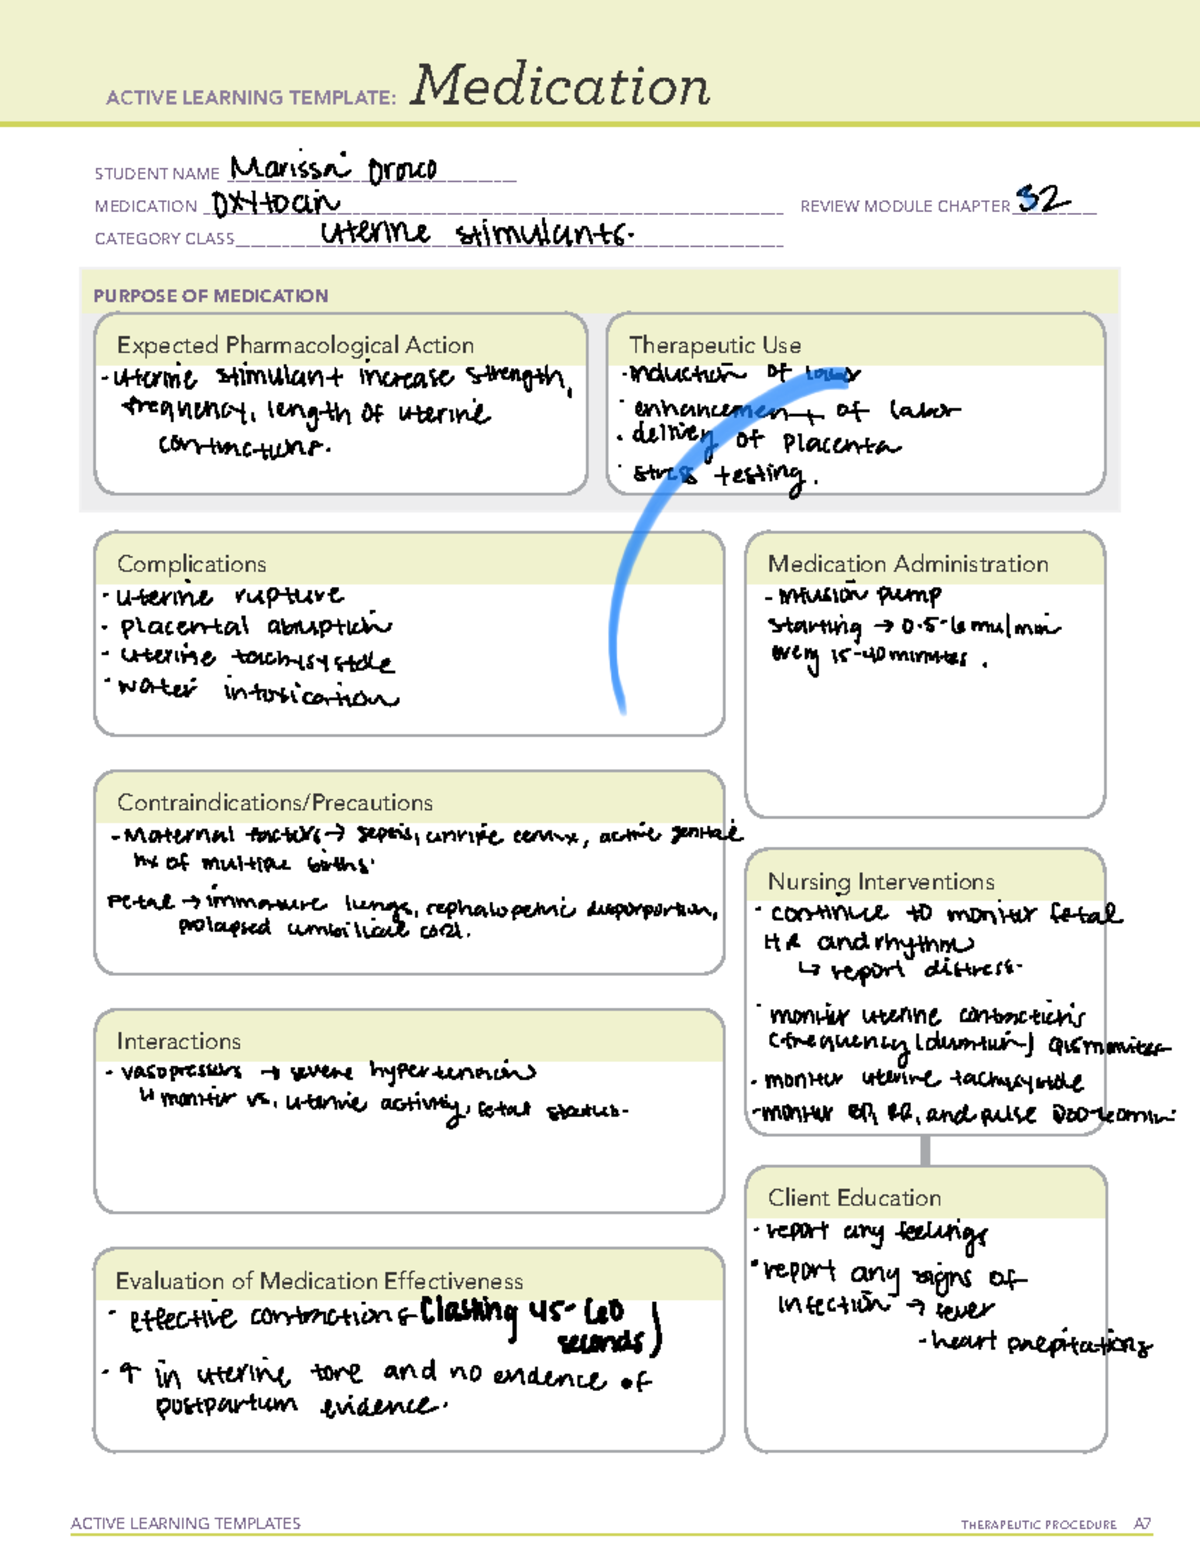 ACTIVE LEARNING TEMPLATE: Medication
STUDENT NAME Marissa Orozco
MEDICATION Oxytocin REVIEW MODULE CHAPTER 32
CATEGORY CLASS uterine stimulants.
PURPOSE OF MEDICATION
Expected Pharmacological Action
-uterine stimulant increase strength,
frequency, length of uterine
contractions.
Therapeutic Use
·induction of labor
·enhancement of labor
·delivey of placenta
·stress testing.
Complications
·uterine rupture
·placental abruption
·uterine tachysystole
·water intoxication
Medication Administration
-infusion pump
starting → 0.5-1o mu/min
every 15-40 minutes.
Contraindications/Precautions
-Maternal factors → sepsis, unripe cervix, active genital
hx of multiple births.
Fetal → immature lungs, cephalopelvic disproportion,
prolapsed umbilical cord.
Nursing Interventions
·continue to monitor fetal
HR and rhythm
↳ report distress.
·monitor uterine contractions
(frequency/duration) Q15 minutes
·monitor uterine tachysystole
-monitor BP, RR, and pulse
Interactions
·vasopressors → severe hypertension
↳ monitor vs, uterine activity, fetal status.
Client Education
·report any feelings
·report any signs of
infection → fever
-heart
Evaluation of Medication Effectiveness
·effective contractions (lasting 45-60
seconds)
·↑ in uterine tone and no evidence of
postpartum evidence.
ACTIVE LEARNING TEMPLATES THERAPEUTIC PROCEDURE A7